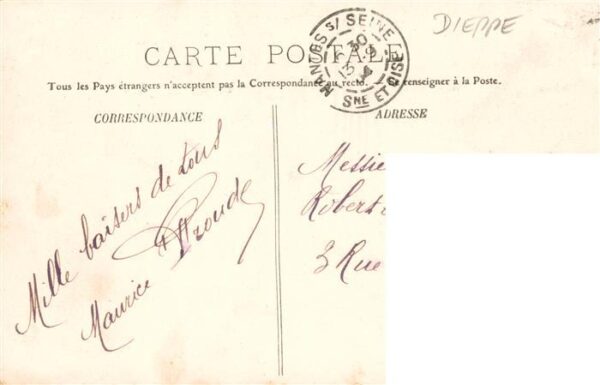 DIEPPE
CARTE POSTALE
Tous les Pays étrangers n'acceptent pas la Correspondance au recto. renseigner à la Poste.
CORRESPONDANCE
ADRESSE
S/ SEINE
30
13
SNE ET OISE
Mille baisers de tous
Maurice
Messie
Robert
3 Rue